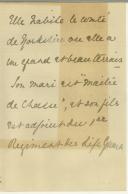 Elle habite le comté
de Yorkshire ou elle a
un grand et beau terrain
Son mari est "Maître
de Chasse", et son fils
est adjoint du 1er
Regiment des Life Guards